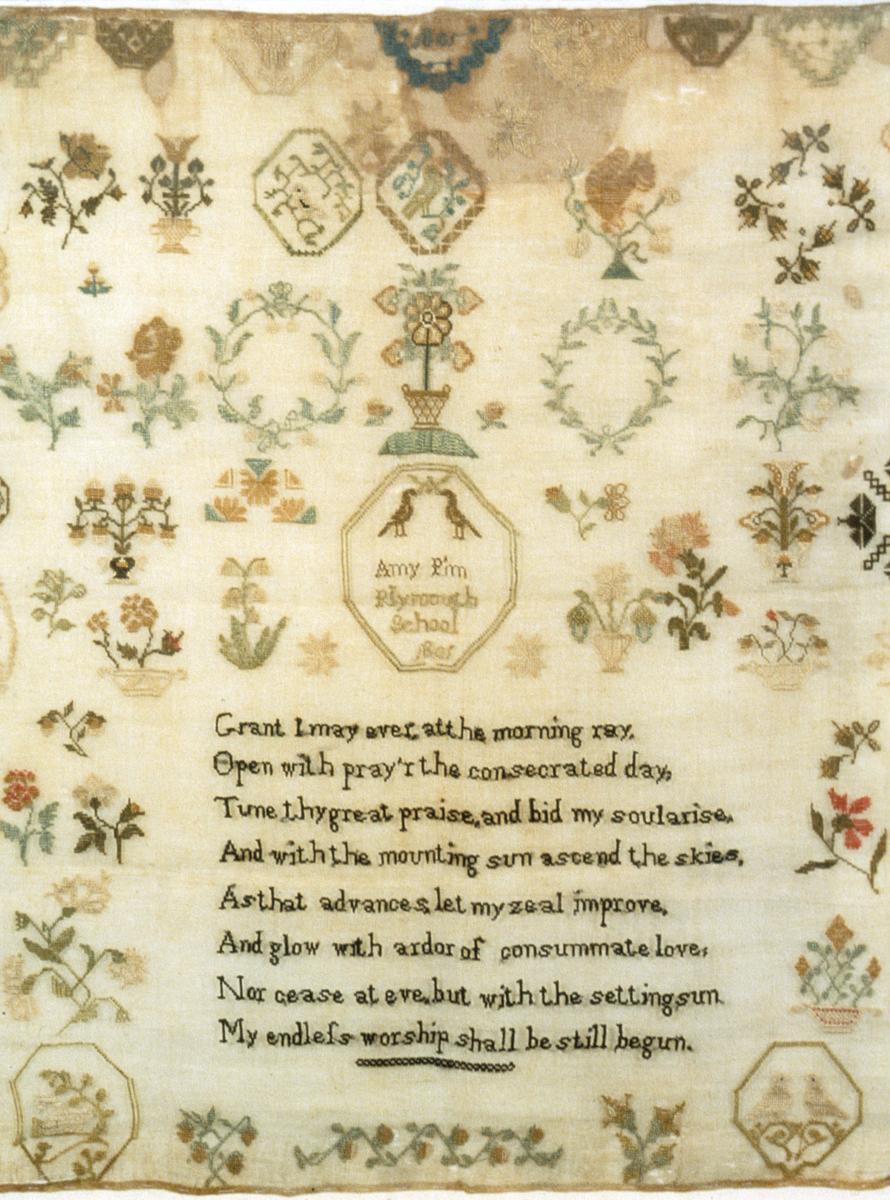 1801
Amy Pim
Plymouth
School
1801
Grant I may ever, at the morning ray,
Open with pray'r the consecrated day,
Tune thy great praise, and bid my soul arise,
And with the mounting sun ascend the skies,
As that advances, let my zeal improve,
And glow with ardor of consummate love,
Nor cease at eve, but with the setting sun
My endleſs worship shall be still begun.